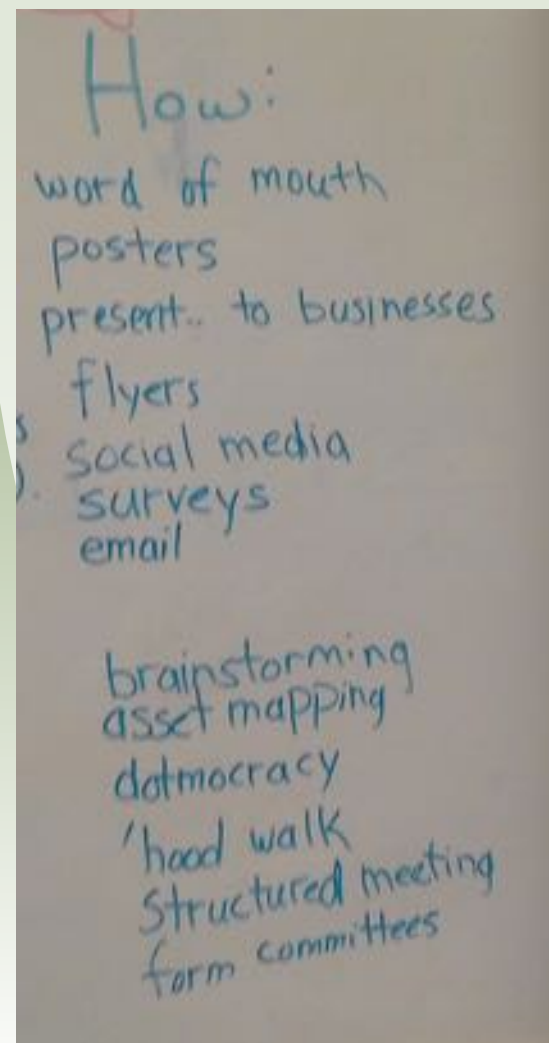 How:
word of mouth
posters
present.. to businesses
flyers
social media
surveys
email
brainstorming
asset mapping
dotmocracy
'hood walk
structured meeting
form committees